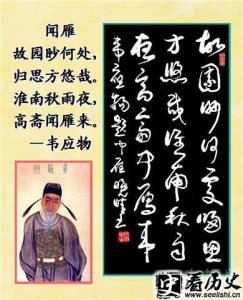 闻雁
故园眇何处，
归思方悠哉。
淮南秋雨夜，
高斋闻雁来。
—韦应物
故园眇何处归思
方悠哉淮南秋雨
夜高斋闻雁来
韦应物闻雁
看历史
www.seelishi.cn